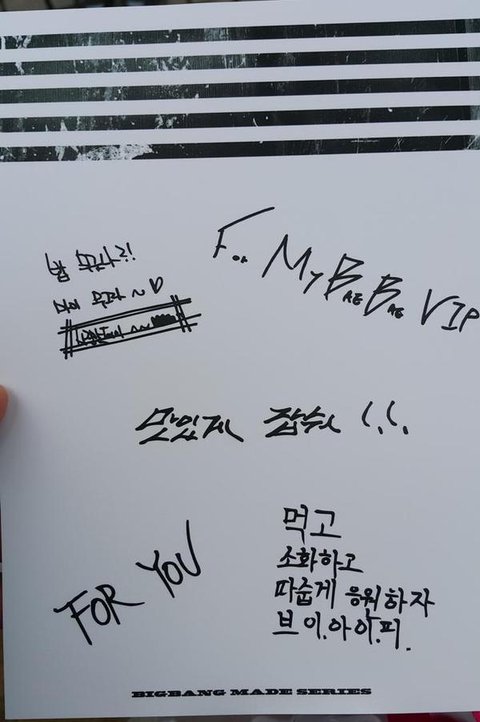 밥
For My BAE BAE VIP
맛있게 잡숴
FOR YOU
먹고
소화하고
따숩게 응원하자
브이.아이.피.
BIGBANG MADE SERIES